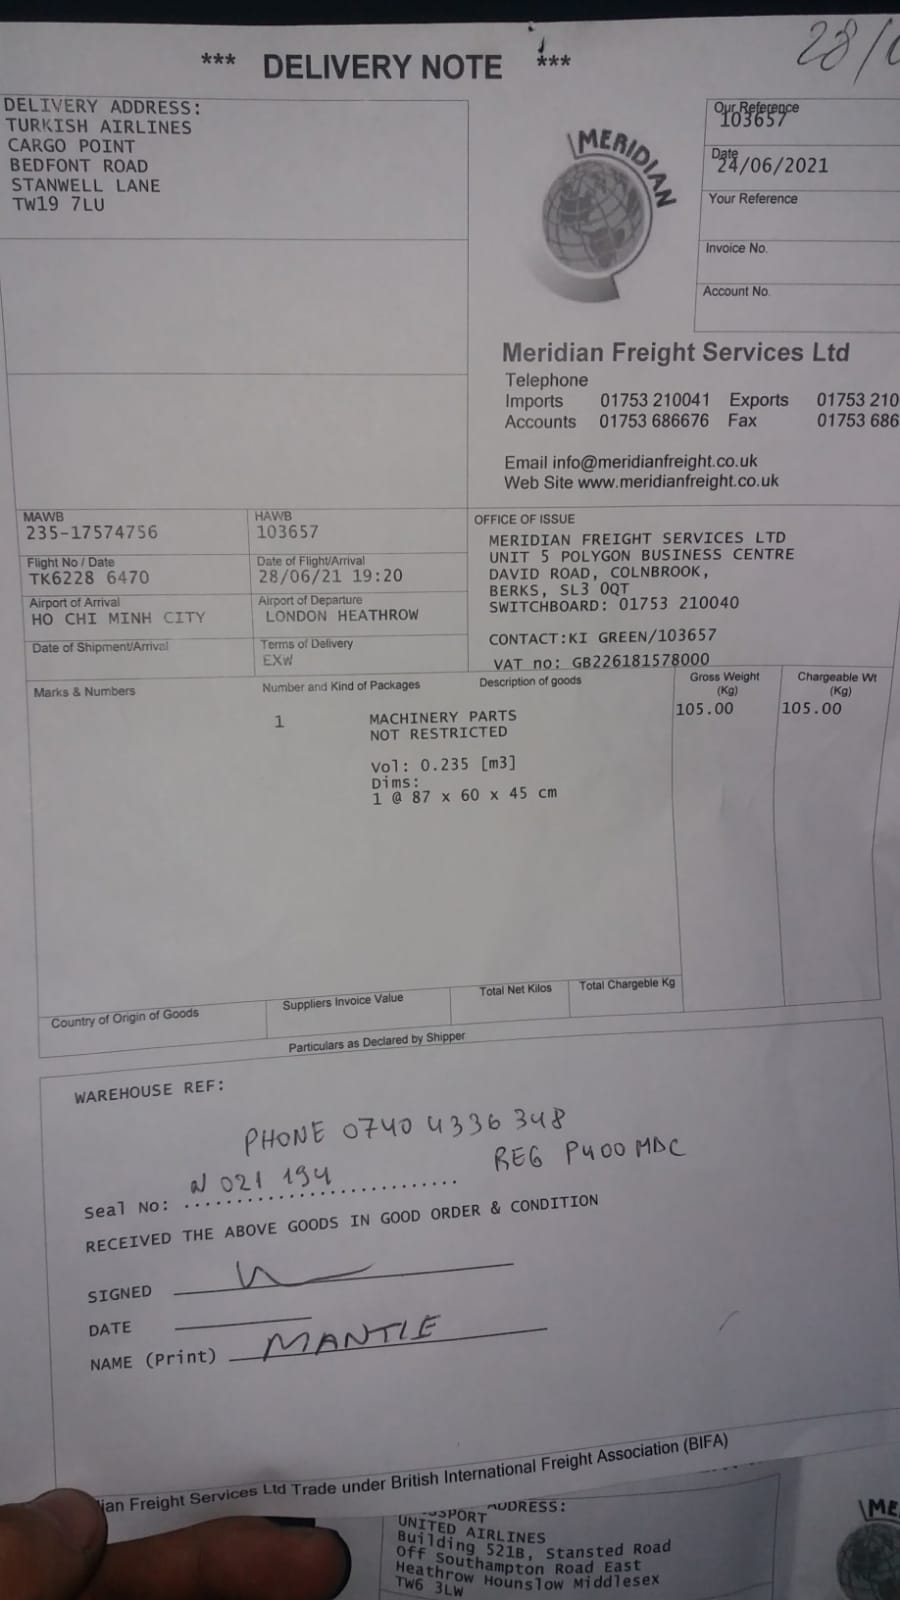 28/
*** DELIVERY NOTE ***
DELIVERY ADDRESS:
TURKISH AIRLINES
CARGO POINT
BEDFONT ROAD
STANWELL LANE
TW19 7LU
MERIDIAN
Our Reference
103657
Date
24/06/2021
Your Reference
Invoice No.
Account No.
Meridian Freight Services Ltd
Telephone
Imports 01753 210041 Exports 01753 210
Accounts 01753 686676 Fax 01753 686
Email info@meridianfreight.co.uk
Web Site www.meridianfreight.co.uk
MAWB
235-17574756
HAWB
103657
Flight No / Date
TK6228 6470
Date of Flight/Arrival
28/06/21 19:20
Airport of Arrival
HO CHI MINH CITY
Airport of Departure
LONDON HEATHROW
Date of Shipment/Arrival
Terms of Delivery
EXW
OFFICE OF ISSUE
MERIDIAN FREIGHT SERVICES LTD
UNIT 5 POLYGON BUSINESS CENTRE
DAVID ROAD, COLNBROOK,
BERKS, SL3 0QT
SWITCHBOARD: 01753 210040
CONTACT:KI GREEN/103657
VAT no: GB226181578000
Marks & Numbers
Number and Kind of Packages
Description of goods
Gross Weight
(Kg)
Chargeable Wt
(Kg)
1 MACHINERY PARTS 105.00 105.00
NOT RESTRICTED
Vol: 0.235 [m3]
Dims:
1 @ 87 x 60 x 45 cm
Country of Origin of Goods
Suppliers Invoice Value
Total Net Kilos
Total Chargeble Kg
Particulars as Declared by Shipper
WAREHOUSE REF:
PHONE 0740 4336 348
REG P400 MDC
Seal No: N 021 194
RECEIVED THE ABOVE GOODS IN GOOD ORDER & CONDITION
SIGNED
DATE
NAME (Print) MANTIE
ian Freight Services Ltd Trade under British International Freight Association (BIFA)
ADDRESS:
SPORT
UNITED AIRLINES
Building 521B, Stansted Road
Off Southampton Road East
Heathrow Hounslow Middlesex
TW6 3LW
ME